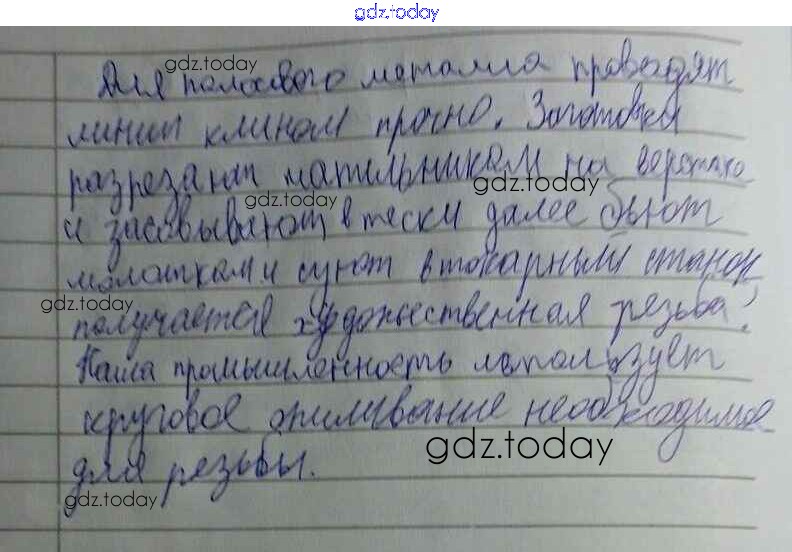 gdz.today
Для полосового металла проводят
gdz.today
линии клином прочно. Заготовки
разрезают напильником на верстаке
gdz.today
gdz.today
и засовывают в тески далее бьют
молотком и суют в токарный станок
gdz.today
получается художественная резьба!
Наша промышленность использует
круговое опиливание необходимое
gdz.today
для резьбы.
gdz.today